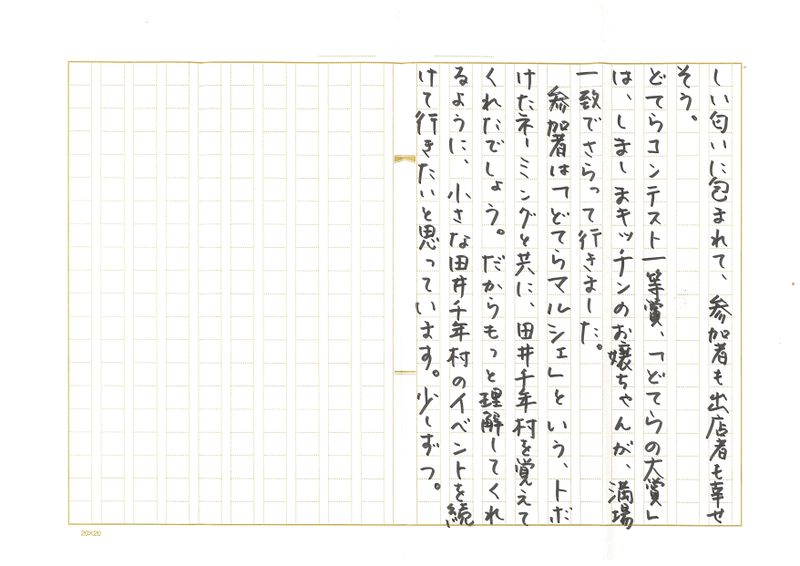 しい匂いに包まれて、参加者も出店者も幸せ
そう。
どてらコンテスト一等賞、「どてらの大賞」
は、しましまキッチンのお嬢ちゃんが、満場
一致でさらって行きました。
参加者は「どてらマルシェ」という、トボ
けたネーミングと共に、田井千年村を覚えて
くれたでしょう。だからもっと理解してくれ
るように、小さな田井千年村のイベントを続
けて行きたいと思っています。少しずつ。
20×20